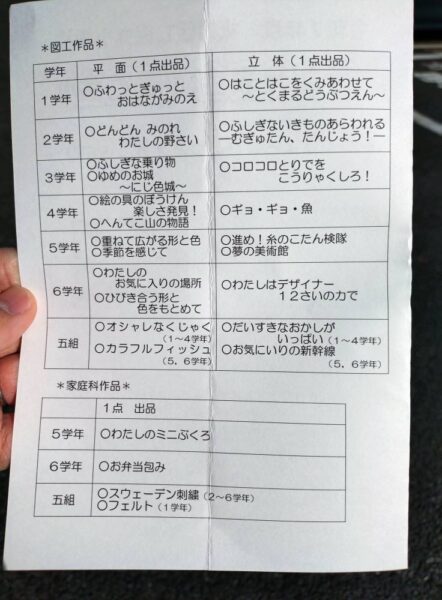 ＊図工作品＊
学年 平 面（１点出品） 立 体（１点出品）
１学年 〇ふわっとぎゅっと
おはながみのえ
〇はことはこをくみあわせて
～とくまるどうぶつえん～
２学年 〇どんどん みのれ
わたしの野さい
〇ふしぎないきものあらわれる
―むぎゅたん、たんじょう！―
３学年 〇ふしぎな乗り物
〇ゆめのお城
～にじ色城～
〇コロコロとりでを
こうりゃくしろ！
４学年 〇絵の具のぼうけん
楽しさ発見！
〇へんてこ山の物語
〇ギョ・ギョ・魚
５学年 〇重ねて広がる形と色
〇季節を感じて
〇進め！糸のこたん検隊
〇夢の美術館
６学年 〇わたしの
お気に入りの場所
〇ひびき合う形と
色をもとめて
〇わたしはデザイナー
１２さいの力で
五組 〇オシャレなくじゃく
（１～４学年）
〇カラフルフィッシュ
（５，６学年）
〇だいすきなおかしが
いっぱい（１～４学年）
〇お気にいりの新幹線
（５，６学年）
＊家庭科作品＊
１点 出品
５学年 〇わたしのミニぶくろ
６学年 〇お弁当包み
五組 〇スウェーデン刺繍（２～６学年）
〇フェルト（１学年）